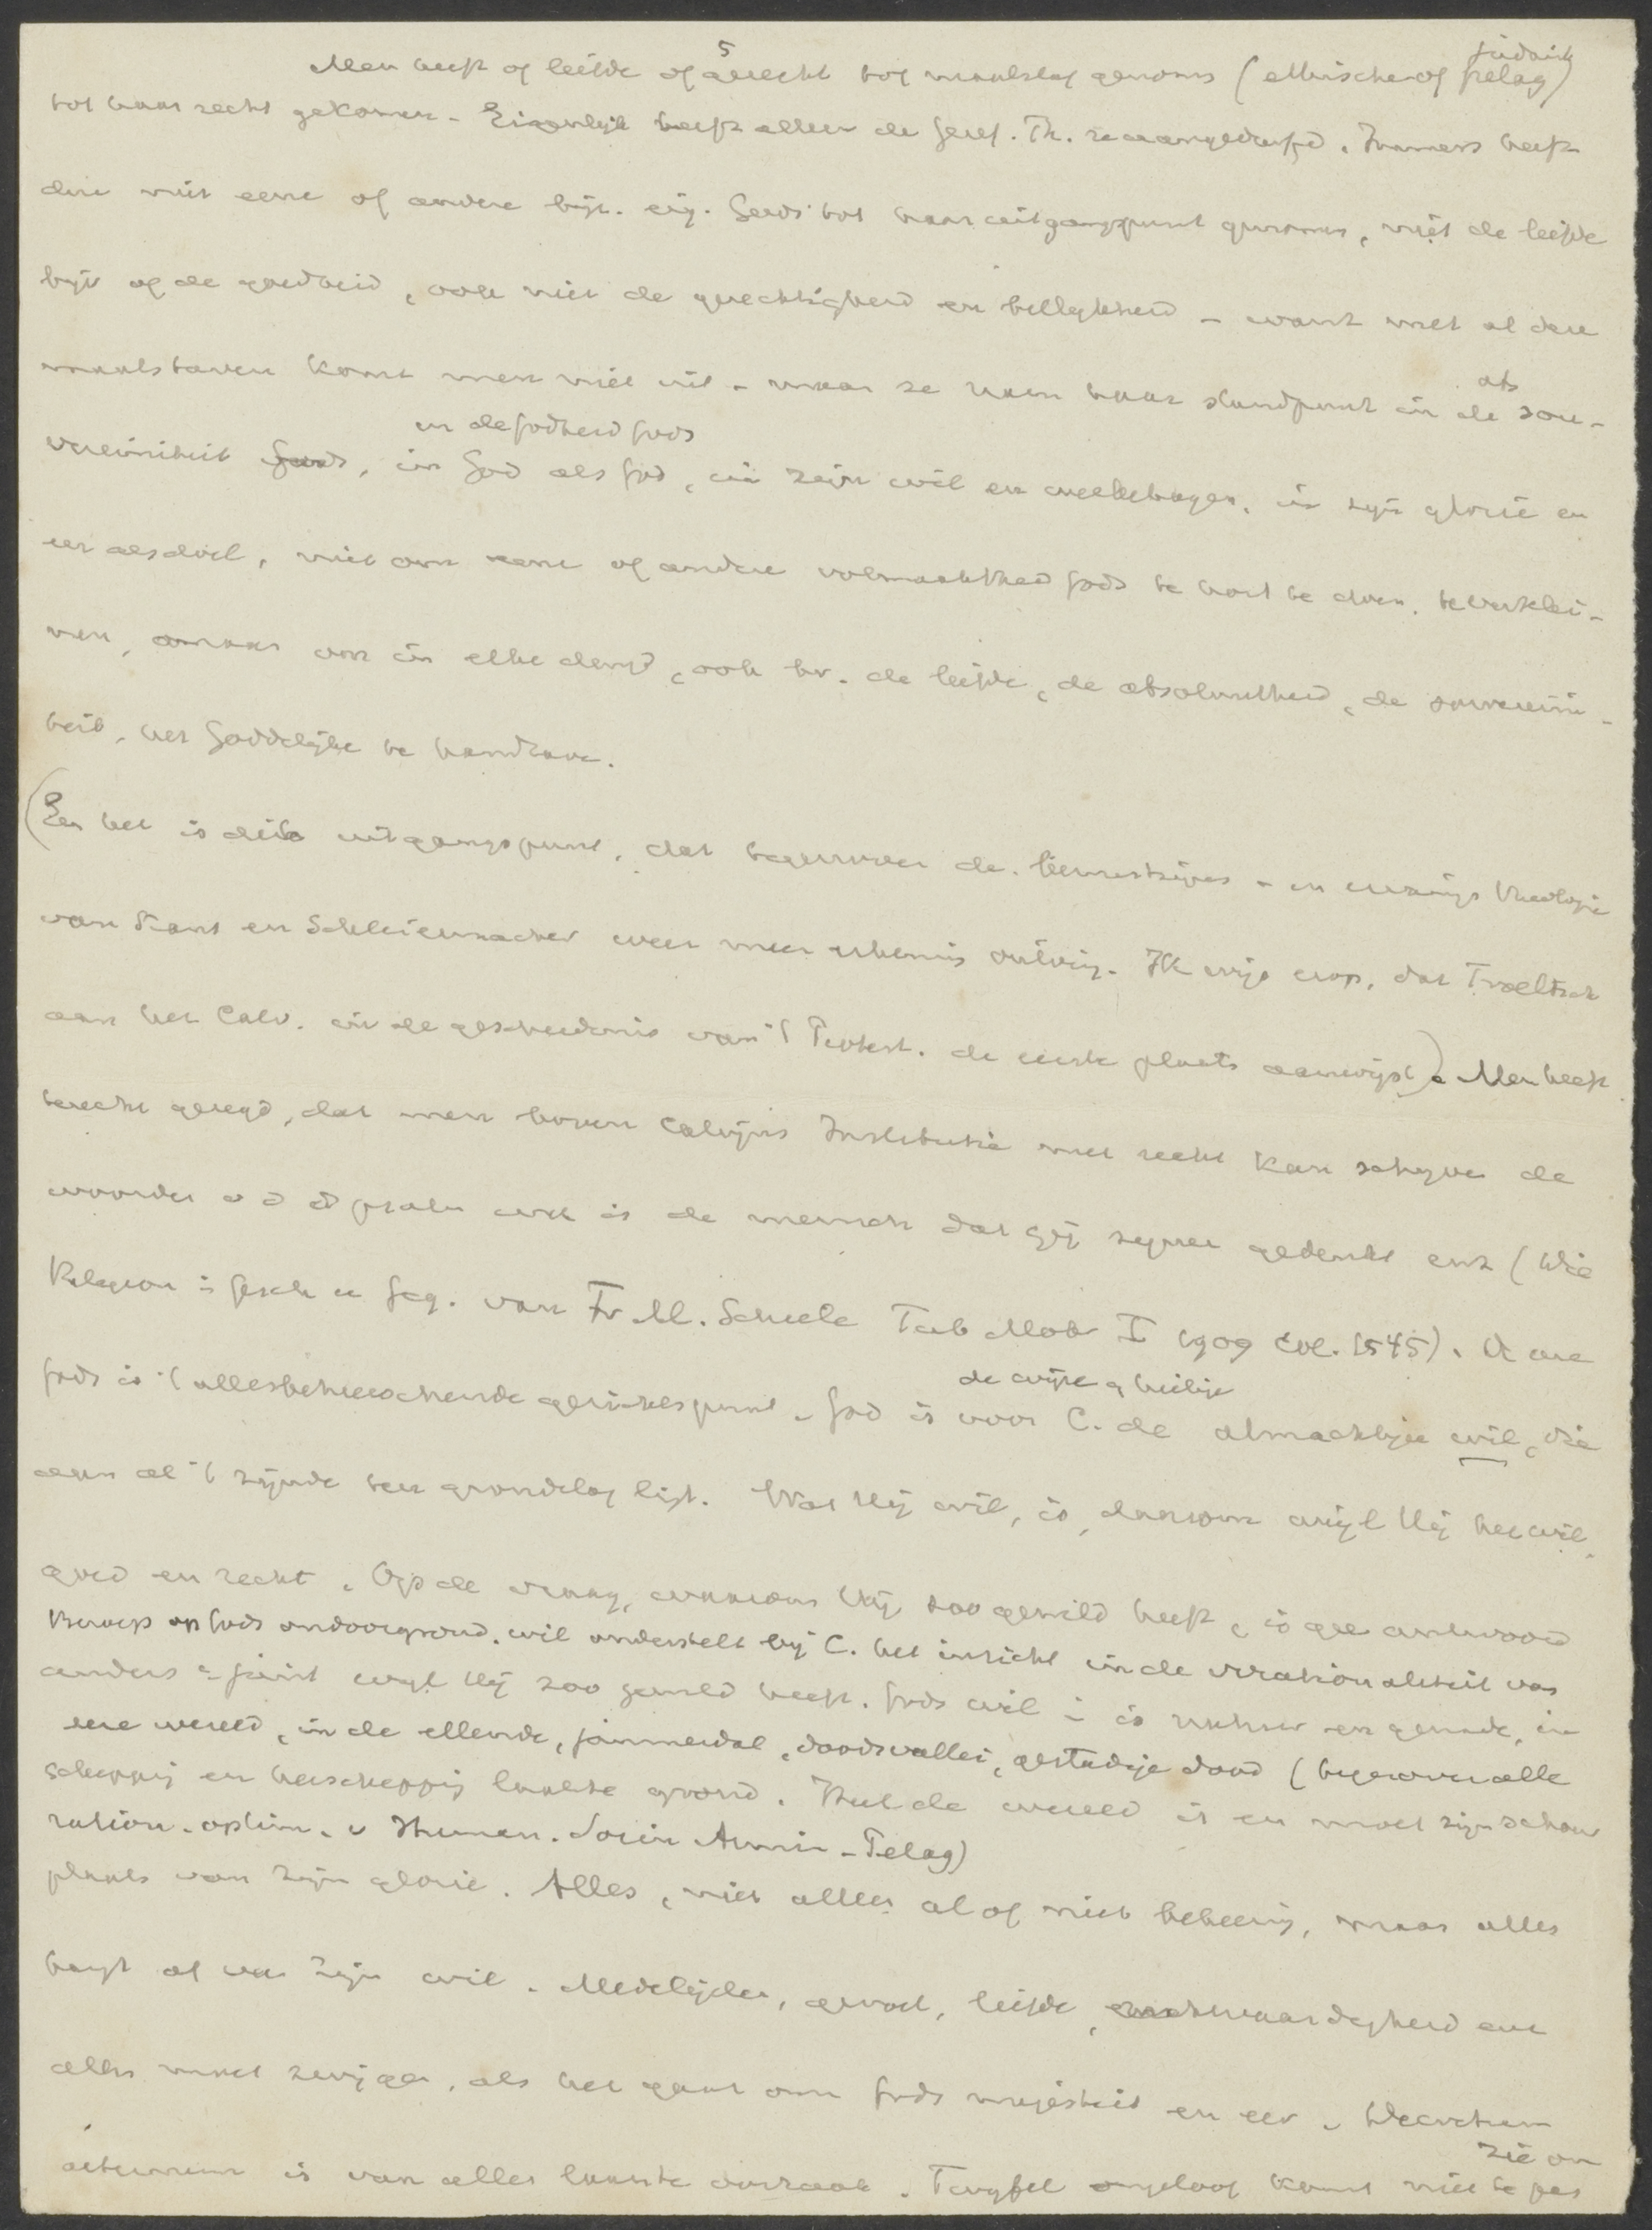 5 juridisch
Men heeft of liefde of gerecht tot maatstaf genomen (ethische of pelag)
tot haar recht gekomen - Eigenlijk heeft alleen de Geref. Th. ze aangedurfd. Immers heeft
deze niet eene of andere bijz. eig. Gods tot haar uitgangspunt genomen, niet de liefde
bijv of de goedheid, ook niet de gerechtigheid en billijkheid - want met al deze
maatstaven komt men niet uit - maar ze nam haar standpunt in de abs sou-
en de Godheid Gods
vereiniteit Gods, in God als God, in zijn wil en welbehagen, in zijn glorie en
eer als doel, niet om eene of andere volmaaktheid Gods te kort te doen, te verklei-
nen, maar om in elke deugd, ook bv. de liefde, de absoluutheid, de souvereini-
teit, het Goddelijke te handhaven.
(En het is dit uitgangspunt, dat tegenover de theologie
van Kant en Schleiermacher weer meer erkenning ontving. Ik wijs erop, dat Troeltsch
aan het Calv. in de geschiedenis van 't Protest. de eerste plaats aanwijst). Men heeft
terecht gezegd, dat men boven Calvijns Institutie met recht kan schrijven de
woorden v d psalm wat is de mensch dat gij zijner gedenkt enz (Die
Religion i Gesch u Geg. von Fr M. Schiele Tüb Mohr I 1909 col. 1545). De eere
Gods is 't allesbeheerschende gezichtspunt. God is voor C. de almachtige wil, die
de wijze, heilige
aan al 't zijnde ten grondslag ligt. Wat Hij wil, is, daarom wijl Hij het wil,
goed en recht. Op de vraag, waarom Hij zoo gewild heeft, is geen antwoord
Beroep op Gods ondoorgrond. wil onderstelt bij C. het inzicht in de irrationaliteit van
anders dan juist wijl Hij zoo gewild heeft. Gods wil is natuur en genade, in
deze wereld, in de ellende, jammerdal, doodsvallei, gestadige dood (tegenover alle
schepping en herschepping laatste grond. Heel de wereld is en moet zijn schouw
ration. optim. v Human. Socin Armin - Pelag)
plaats van zijn glorie. Alles, niet alleen al of niet bekeering, maar alles
hangt af van zijn wil. Medelijden, gevoel, liefde, rechtvaardigheid enz
alles moet zwijgen, als het gaat om Gods majesteit en eer. Decretum
aeternum is van alles laatste oorzaak. Twijfel ongeloof komt niet te pas
zie on